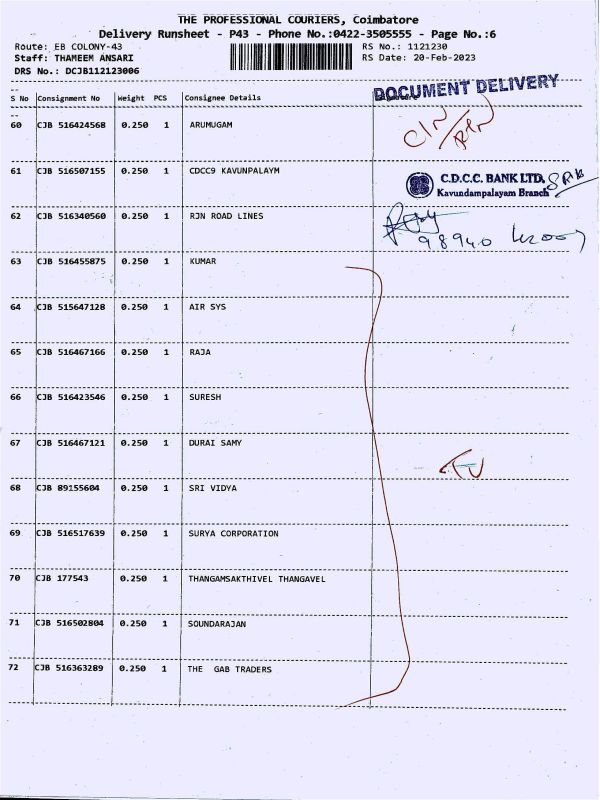 THE PROFESSIONAL COURIERS, Coimbatore
Delivery Runsheet - P43 - Phone No.:0422-3505555 - Page No.:6
Route: EB COLONY-43
RS No.: 1121230
Staff: THAMEEM ANSARI
RS Date: 20-Feb-2023
DRS No.: DCJB112123006
DOCUMENT DELIVERY
S No Consignment No Weight PCS Consignee Details
60 CJB 516424568 0.250 1 ARUMUGAM
61 CJB 516507155 0.250 1 CDCC9 KAVUNPALAYM
C.D.C.C. BANK LTD,
Kavundampalayam Branch
62 CJB 516340560 0.250 1 RJN ROAD LINES
63 CJB 516455875 0.250 1 KUMAR
64 CJB 515647128 0.250 1 AIR SYS
65 CJB 516467166 0.250 1 RAJA
66 CJB 516423546 0.250 1 SURESH
67 CJB 516467121 0.250 1 DURAI SAMY
68 CJB 89155604 0.250 1 SRI VIDYA
69 CJB 516517639 0.250 1 SURYA CORPORATION
70 CJB 177543 0.250 1 THANGAMSAKTHIVEL THANGAVEL
71 CJB 516502804 0.250 1 SOUNDARAJAN
72 CJB 516363289 0.250 1 THE GAB TRADERS